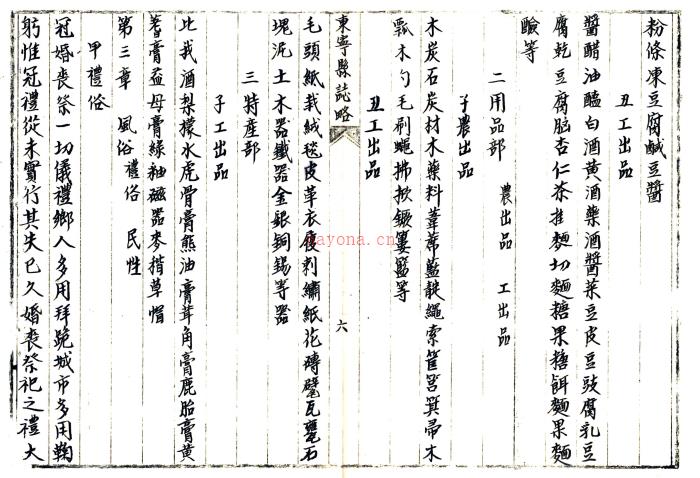 粉條凍豆腐鹹豆醬
丑工出品
醬醋油醯白酒黃酒藥酒醬菜豆皮豆豉腐乳豆
腐乾豆腐腦杏仁茶挂麵切麵糖果糖餌麵果麵
醶等
二用品部　農出品　工出品
子農出品
木炭石炭材木藥料葦蓆藍靛繩索筐筥箕帚木
瓢木勺毛刷蠅拂掀鐝簍籃等
丑工出品
東寧縣誌略
六
毛頭紙栽絨毯皮革衣履刺繡紙花磚甓瓦甕石
塊泥土木器鐵器金銀銅錫等器
三特產部
子工出品
北我酒梨檬水虎骨膏熊油膏茸角膏鹿胎膏黃
蓍膏益母膏綠釉磁器麥楷草帽
第三章　風俗禮俗　民性
甲禮俗
冠婚喪祭一切儀禮鄉人多用拜跪城市多用鞠
躬惟冠禮從未實行其失已久婚喪祭祀之禮大
nayona.cn